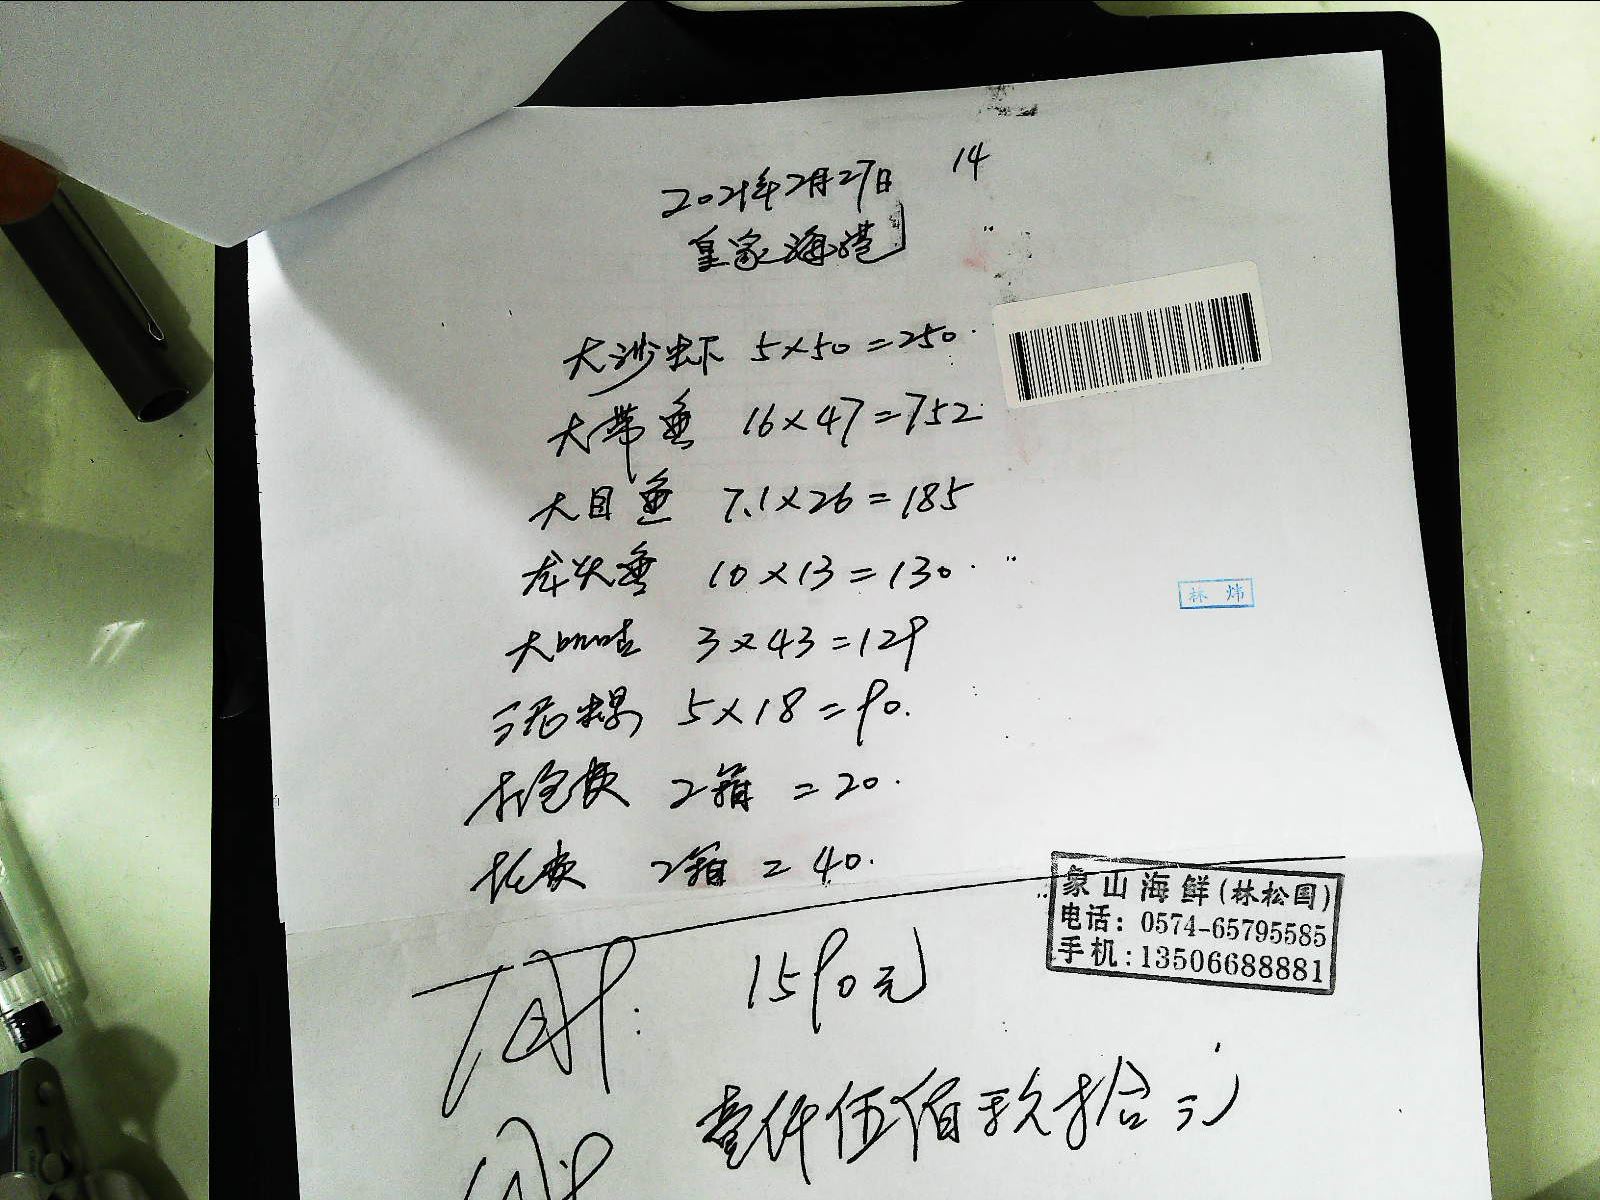 2021年2月27日 14
皇家海港
大沙虾 5×50=250.
大带鱼 16×47=752
大目鱼 7.1×26=185
龙头鱼 10×13=130.
大 3×43=129
泥螺 5×18=90.
打包费 2箱 =20.
托费 2箱 =40.
林 炜
象山海鲜(林松国)
电话: 0574-65795585
手机:13506688881
1590元
壹仟伍佰玖拾元